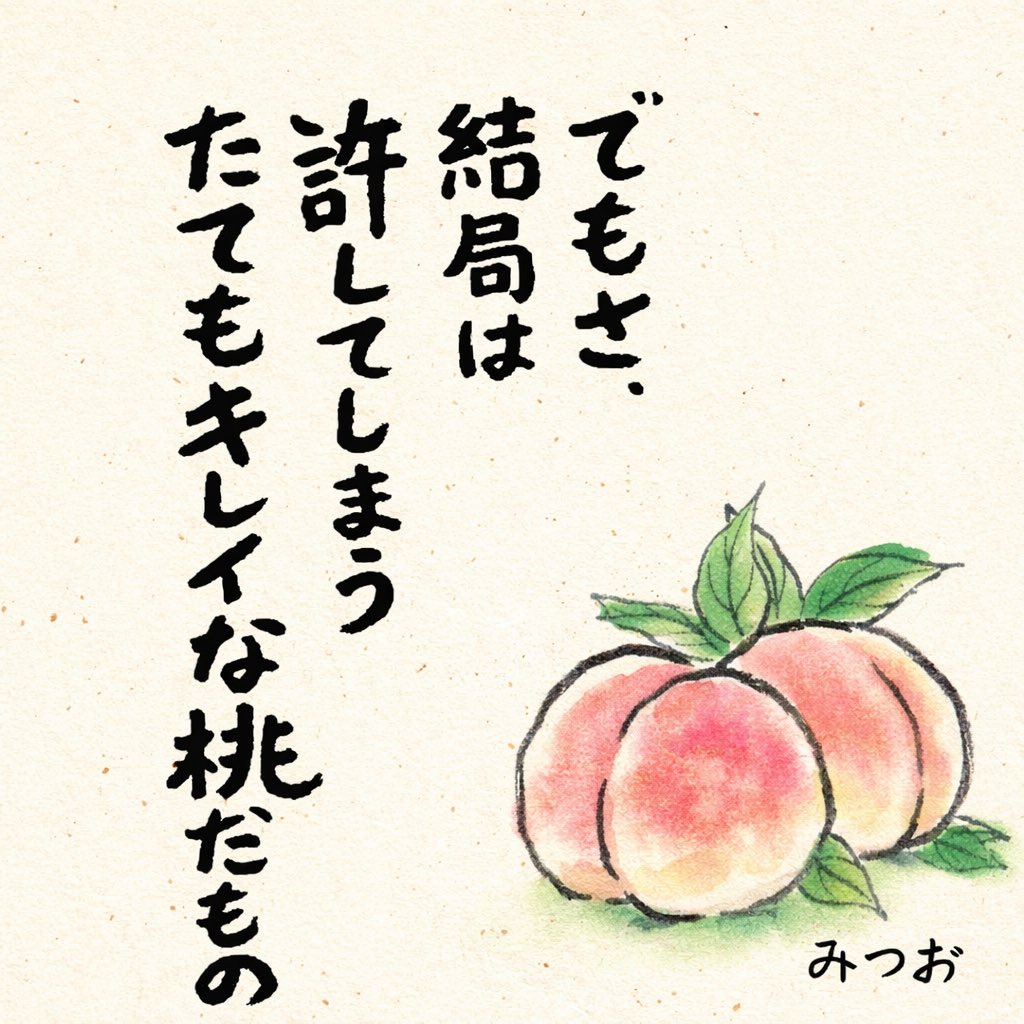 でもさ、
結局は
許してしまう
たてもキレイな桃だもの
みつお